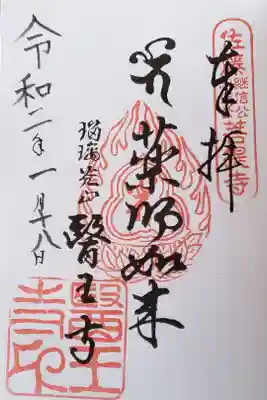 奉拝
佐藤継信公
菩提寺
薬師如来
瑠璃光山
醫王寺
令和二年一月十八日
醫王
寺印